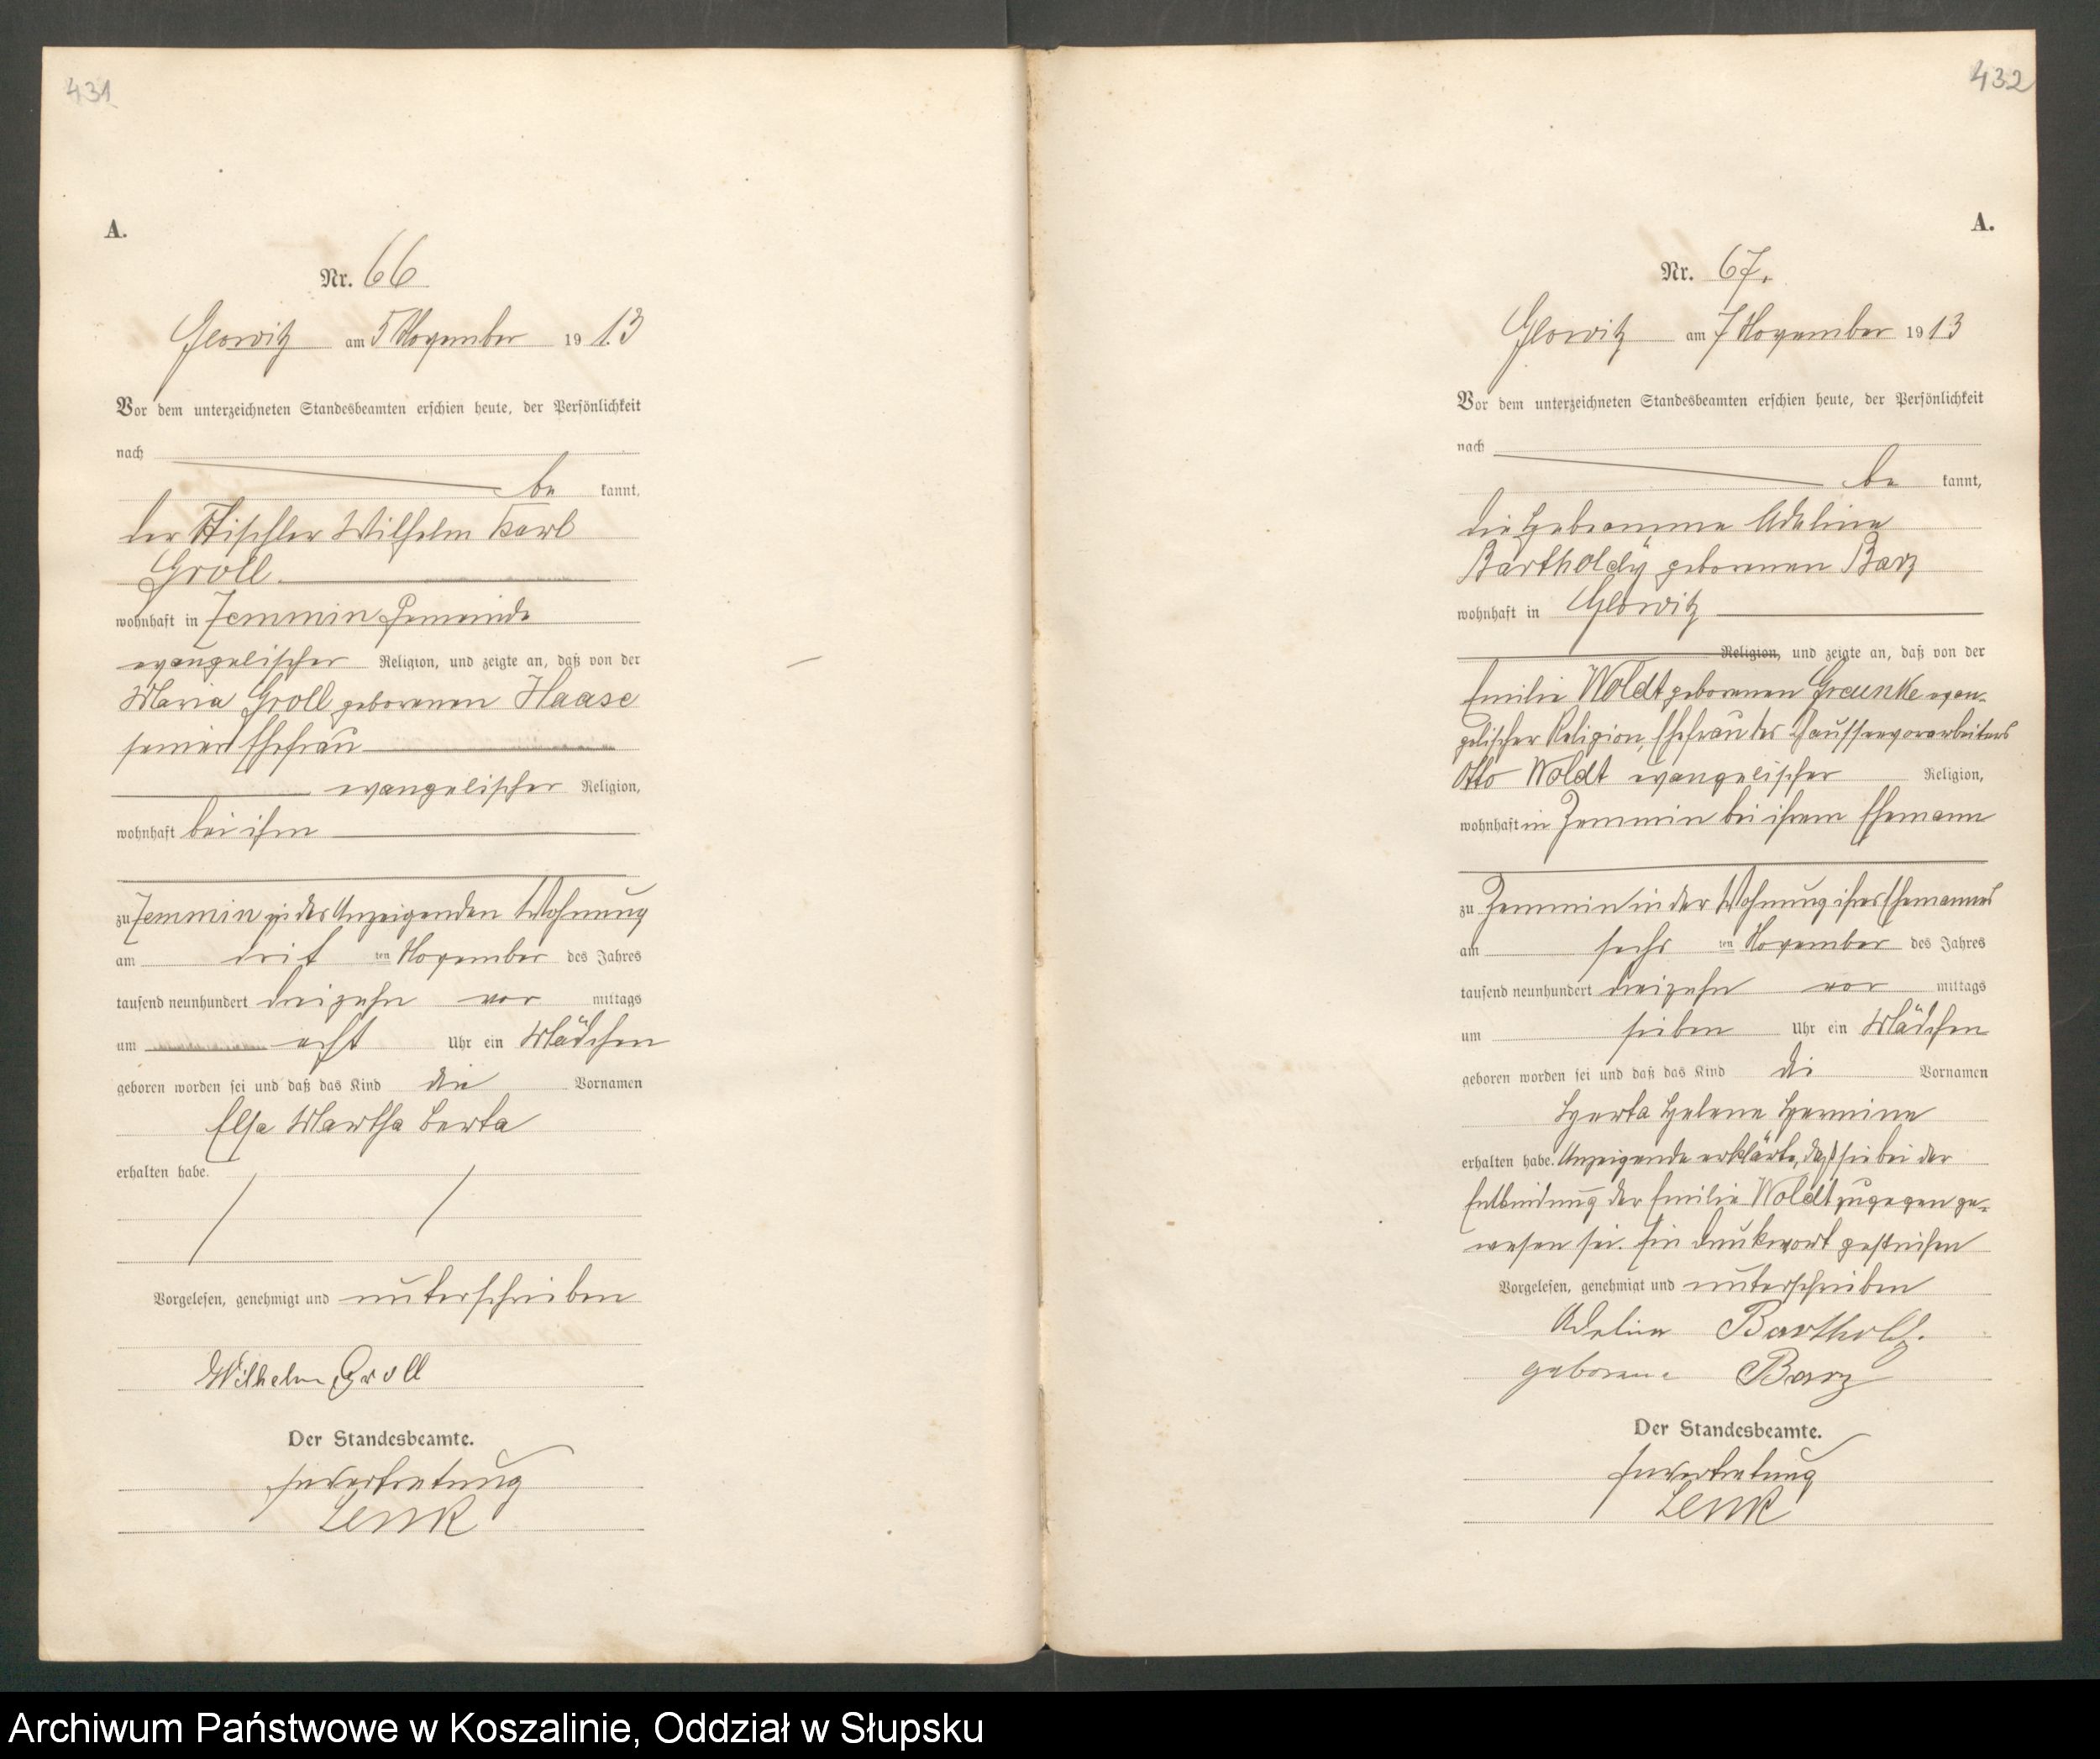 431
A.
Nr. 66
Glowitz am 5 November 1913
Vor dem unterzeichneten Standesbeamten erschien heute, der Persönlichkeit
nach
be kannt,
der Tischler Wilhelm Karl
Groll
wohnhaft in Zemmin Gemeinde
evangelischer Religion, und zeigte an, daß von der
Maria Groll geborenen Haase
seiner Ehefrau
evangelischer Religion,
wohnhaft bei ihm
zu Zemmin in des Anzeigenden Wohnung
am drit ten November des Jahres
tausend neunhundert dreizehn vor mittags
um acht Uhr ein Mädchen
geboren worden sei und daß das Kind die Vornamen
Elsa Martha Berta
erhalten habe.
Vorgelesen, genehmigt und unterschrieben
Wilhelm Groll
Der Standesbeamte.
In Vertretung
Lenk
432
A.
Nr. 67.
Glowitz am 7 November 1913
Vor dem unterzeichneten Standesbeamten erschien heute, der Persönlichkeit
nach
be kannt,
die Hebeamme Adeline
Bartholdy geborenen Barz
wohnhaft in Glowitz
Religion, und zeigte an, daß von der
Emilie Woldt geborenen Greunke evan-
gelischer Religion, Ehefrau des
Otto Woldt evangelischer Religion,
wohnhaft in Zemmin bei ihrem Ehemann
zu Zemmin in der Wohnung ihres Ehemannes
am sechs ten November des Jahres
tausend neunhundert dreizehn vor mittags
um sieben Uhr ein Mädchen
geboren worden sei und daß das Kind di Vornamen
Herta Helene Hermine
erhalten habe. Anzeigende erklärte, daß sie bei der
Entbindung der Emilie Woldt zugegen ge-
wesen sei. Ein Druckwort gestrichen
Vorgelesen, genehmigt und unterschrieben
Adeline Bartholdy.
geborene Barz
Der Standesbeamte.
In Vertretung
Lenk
Archiwum Państwowe w Koszalinie, Oddział w Słupsku